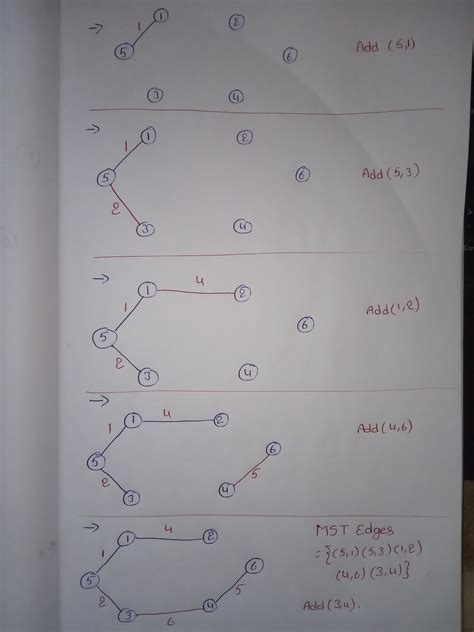 → 1 1 2
5 6 Add (5,1)
3 4
→ 1 1 2
5 6 Add(5,3)
2
3 4
→ 1 4 2
1
5 6 Add(1,2)
2
3 4
→ 1 4 2
1 6 Add(4,6)
5 5
2 4
3
→ 1 4 2 MST Edges
1 6 = {(5,1)(5,3)(1,2)
5 5 (4,6)(3,4)}
2 4 Add(3,4).
3 6